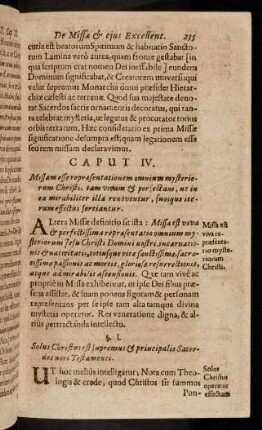 De Missa & ejus Excellent. 235
centia est beatorum Spirituum & habitatio Sancto-
rum Lamina verò aurea, quam fronte gestabat in
qua scriptum erat nomen Dei ineffabile Jeundem
Dominum significabat, & Creatorem universi qui
velut supremus Monarcha omni præsidet Hierar-
chiæ cælesti ac terrenæ. Quod sua majestate denot
at Sacerdos sacris ornamentis decoratus, qui tan-
ta celebrat mysteria, ut legatus & procurator totius
orbis terrarum. Hæc consideratio ex prima Missæ
significatione desumpta est, quam legationem esse
seu rem missam declaravimus.
CAPUT IV.
Missam esse repræsentationem omnium mysterio-
rum Christi, tam vivam & perfectam, ut in
ea mirabiliter illa renoventur, suosque ite-
rum effectus sortiantur.
ALtera Missæ definitio sic ista: Missa est viva
& perfectissima repræsentatio omnium my-
steriorum Jesu Christi Domini nostri, incarnatio-
nis & nativitatis, totiusque vitæ sanctissimæ, sacra-
tissimæ passionis ac mortis, gloriosæ resurrectionis
atque admirabilis ascensionis. Quæ tam vivè ac
propriè in Missa exhibentur, ut ipse Dei filius præ-
sens assistat, & suam ponens figuram & personam
repræsentans per se ipse tam alta tamque divina
mysteria operetur. Res veneratione digna, &
altius pertractanda intellectu.
Missa est
viva re-
præsenta-
tio myste-
riorum
Christi.
§. I.
Solus Christus est supremus & principalis Sacer-
dos novi Testamenti.
UT hoc meliùs intelligatur; Nota cum Theo-
logis & crede, quod Christus sit summus
Pon-
Solus
Christus
operatur
effectus